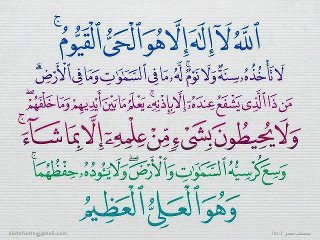 ٱللَّهُ لَآ إِلَٰهَ إِلَّا هُوَ ٱلْحَىُّ ٱلْقَيُّومُ ۚ
لَا تَأْخُذُهُۥ سِنَةٌ وَلَا نَوْمٌ ۚ لَّهُۥ مَا فِى ٱلسَّمَٰوَٰتِ وَمَا فِى ٱلْأَرْضِ ۗ
مَن ذَا ٱلَّذِى يَشْفَعُ عِندَهُۥٓ إِلَّا بِإِذْنِهِۦ ۚ يَعْلَمُ مَا بَيْنَ أَيْدِيهِمْ وَمَا خَلْفَهُمْ ۖ
وَلَا يُحِيطُونَ بِشَىْءٍ مِّنْ عِلْمِهِۦٓ إِلَّا بِمَا شَآءَ ۚ
وَسِعَ كُرْسِيُّهُ ٱلسَّمَٰوَٰتِ وَٱلْأَرْضَ ۖ وَلَا يَـُٔودُهُۥ حِفْظُهُمَا ۚ
وَهُوَ ٱلْعَلِىُّ ٱلْعَظِيمُ